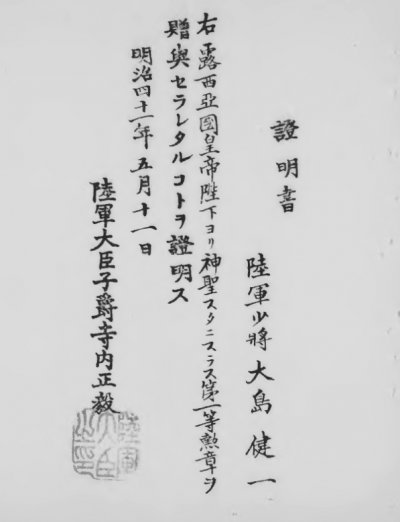 證明書
陸軍少將大島健一
右露西亞國皇帝陛下ヨリ神聖スタニスラス第一等勲章ヲ
贈與セラレタルコトヲ證明ス
明治四十一年五月十一日
陸軍大臣子爵寺内正毅
陸軍
大臣
之印